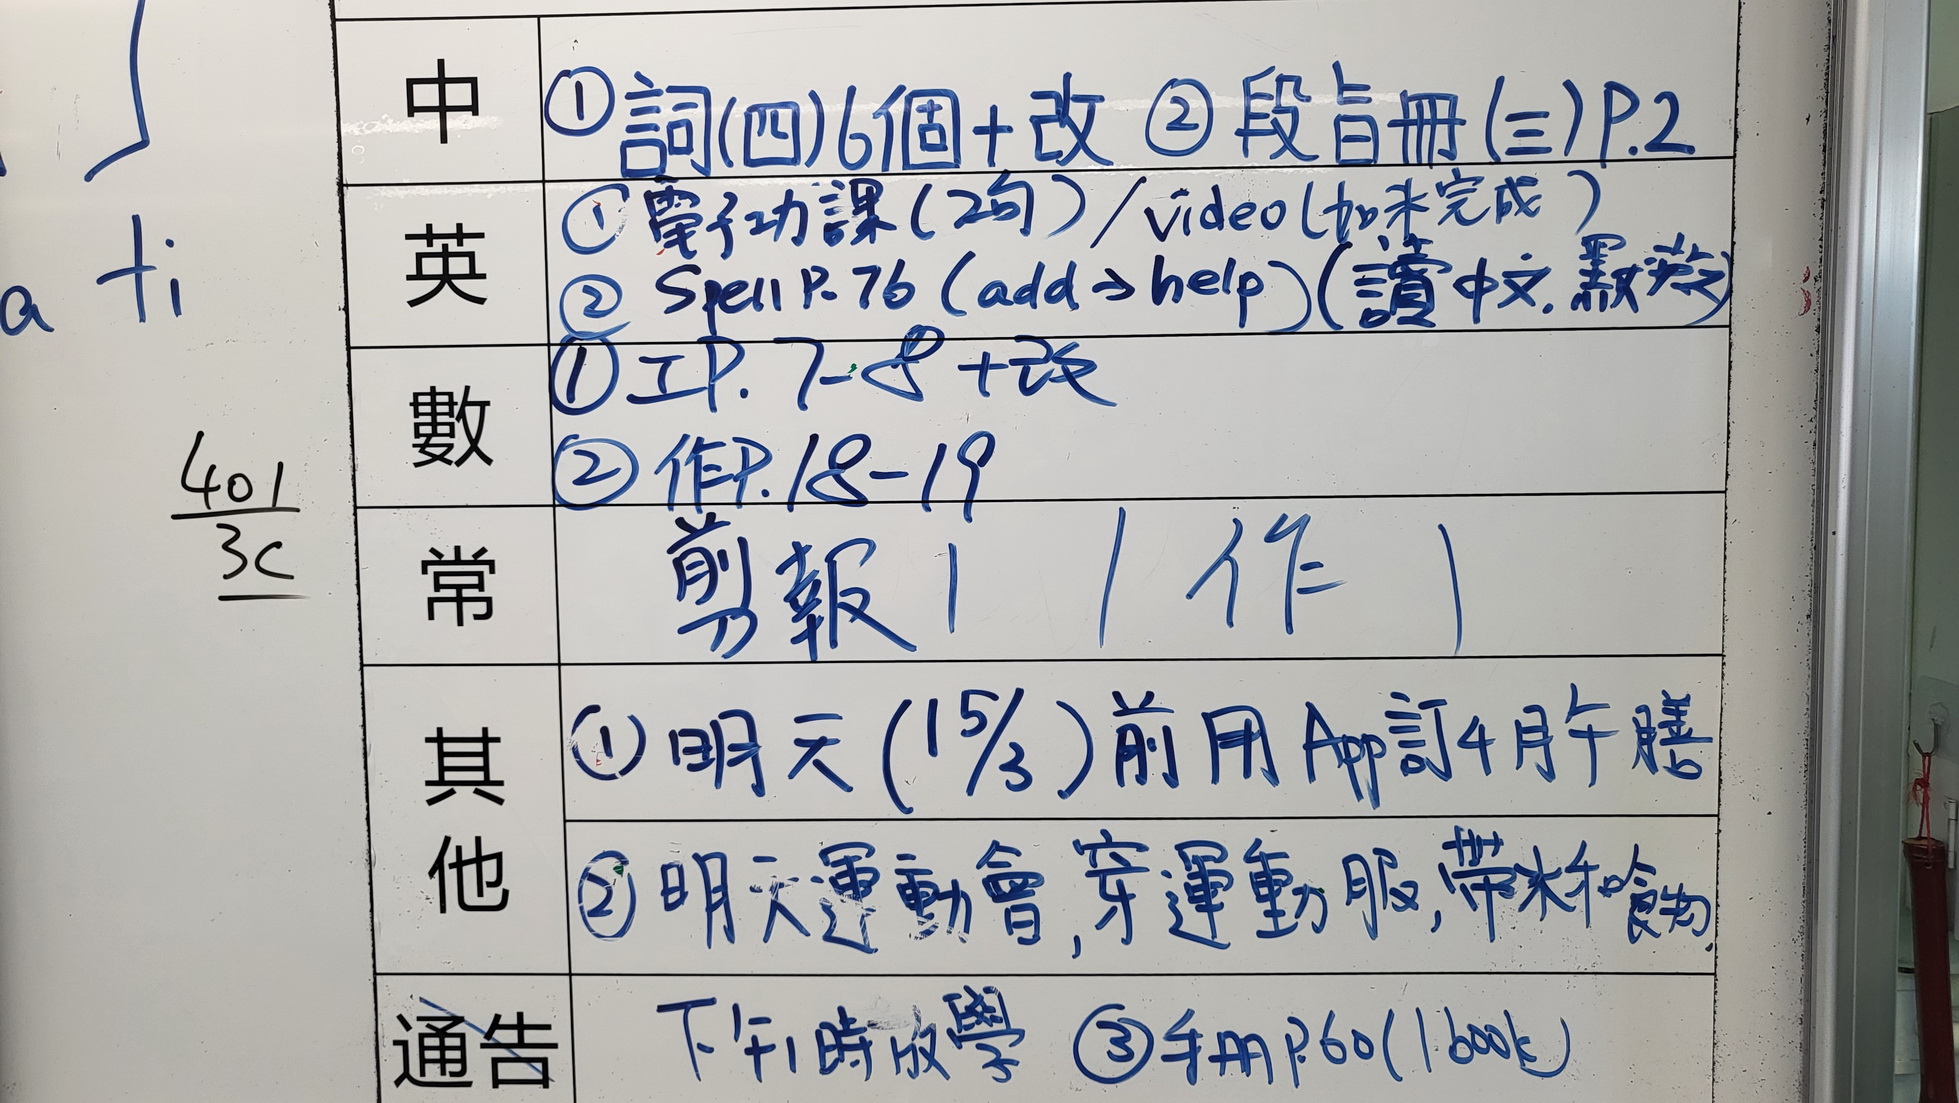 a ti
401
3C
中
① 詞(四)6個+改 ② 段旨冊(三)P.2
英
① 電子功課(2句)/video(如未完成)
② Spell P.76 (add→help)(讀中文.默英文)
數
① 工P.7-8+改
② 作P.18-19
常
剪報1 / 作1
其他
① 明天(15/3)前用App訂4月午膳
② 明天運動會,穿運動服,帶水和食物.
通告
下午1時放學 ③手冊P.60(1 book)